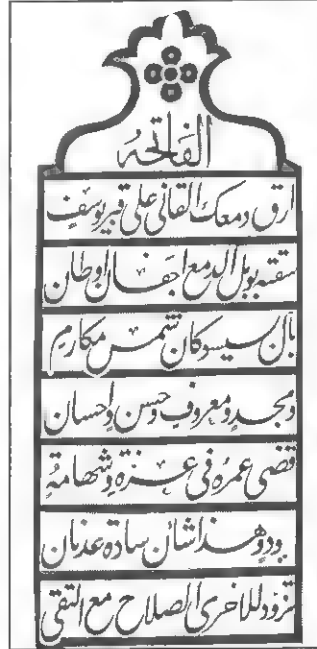 الفاتحه
ارق دمعك القاني على قبر يوسف
سقته بوبل الدمع اجفان اوطان
بال سيسو كان شمس مكارم
ومجد ومعروف وحسن واحسان
قضى عمره في عزة وشهامة
وهذا شان سادة عدنان
تزود للاخرى الصلاح مع التقى